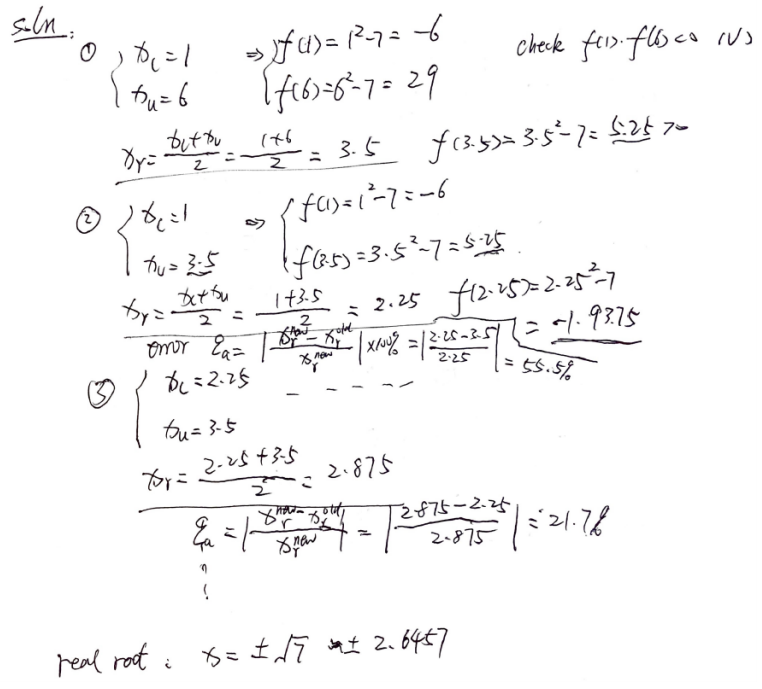 soln:
① { x_l = 1 ⇒ { f(1) = 1² - 7 = -6 check f(1)·f(6) < 0 (√)
x_u = 6 f(6) = 6² - 7 = 29
x_r = (x_l + x_u)/2 = (1+6)/2 = 3.5 f(3.5) = 3.5² - 7 = 5.25 > 0
② { x_l = 1 ⇒ { f(1) = 1² - 7 = -6
x_u = 3.5 f(3.5) = 3.5² - 7 = 5.25
x_r = (x_l + x_u)/2 = (1+3.5)/2 = 2.25 f(2.25) = 2.25² - 7
= -1.9375
error ε_a = |(x_r^new - x_r^old)/x_r^new| × 100% = |(2.25 - 3.5)/2.25| = 55.5%
③ { x_l = 2.25 - - - - -
x_u = 3.5
x_r = (2.25 + 3.5)/2 = 2.875
ε_a = |(x_r^new - x_r^old)/x_r^new| = |(2.875 - 2.25)/2.875| = 21.7%
real root: x = ±√7 ≈ ± 2.6457